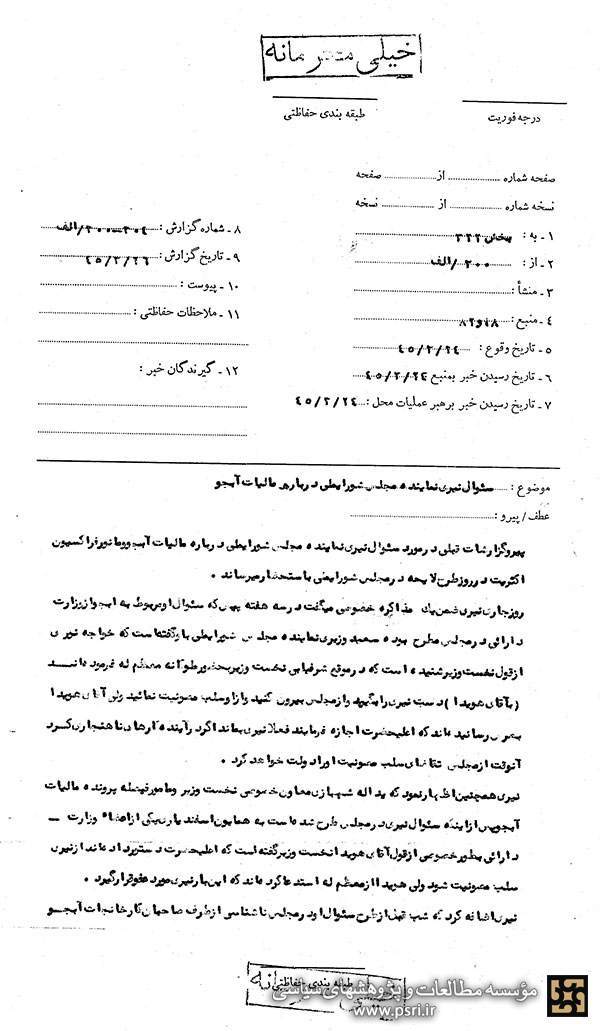 خیلی محرمانه
درجه فوریت
طبقه بندی حفاظتی
صفحه شماره از صفحه
نسخه شماره از نسخه
۱ - به : بخش ۳۲۲
۲ - از : ۲۰۰ /الف
۳ - منشأ :
۴ - منبع :
۵ - تاریخ وقوع : ۴۵/۲/۲۴
۶ - تاریخ رسیدن خبر بمنبع ۴۵/۲/۲۴
۷ - تاریخ رسیدن خبر برهبر عملیات محل : ۴۵/۲/۲۴
۸ - شماره گزارش :
۹ - تاریخ گزارش : ۴۵/۲/۲۶
۱۰ - پیوست :
۱۱ - ملاحظات حفاظتی :
۱۲ - گیرندگان خبر :
موضوع : سئوال نیری نماینده مجلس شورایملی درباره مالیات آبجو
عطف / پیرو :
پیروگزارشات قبلی در مورد سئوال نیری نماینده مجلس شورایملی درباره مالیات آبجو ومانور فراکسیون
اکثریت در روز طرح لایحه در مجلس شورایملی باستحضار میرساند .
روز جاری نیری ضمن یک مذاکره خصوصی میگفت در سه هفته پیش که سئوال او مربوط به آبجو از وزارت
دارائی در مجلس مطرح بوده سعید وزیری نماینده مجلس شورایملی باو گفته است که خواجه نوری
از قول نخست وزیر شنیده است که در موقع شرفیابی نخست وزیر بحضور ملوکانه معظم له فرموده‌اند
( بآقای هویدا ) دست نیری را بگیرید و از مجلس بیرون کنید و از او سلب مصونیت نمائید ولی آقای هویدا
بعرض رسانیده‌اند که اعلیحضرت اجازه فرمایند فعلا نیری بماند اگر در آینده کارهای ناهنجاری کرد
آنوقت از مجلس تقاضای سلب مصونیت او را دولت خواهد کرد .
نیری همچنین اظهار نمود که یداله شهبازی معاون خصوصی نخست وزیر و مامور تیصله پرونده مالیات
آبجو پس از اینکه سئوال نیری در مجلس طرح شده است به همایون اسفندیاری یکی از اعضاء وزارت
دارائی بطور خصوصی از قول آقای هویدا نخست وزیر گفته است که اعلیحضرت دستور داده‌اند از نیری
سلب مصونیت شود ولی هویدا از معظم له استدعا کرده‌اند که این بار نیری مورد عفو قرار گیرد .
نیری اضافه کرد که شب قبل از طرح سئوال او در مجلس ناشناسی از طرف صاحبان کارخانجات آبجو
طبقه بندی حفاظتی
مؤسسه مطالعات و پژوهشهای سیاسی
www.psri.ir